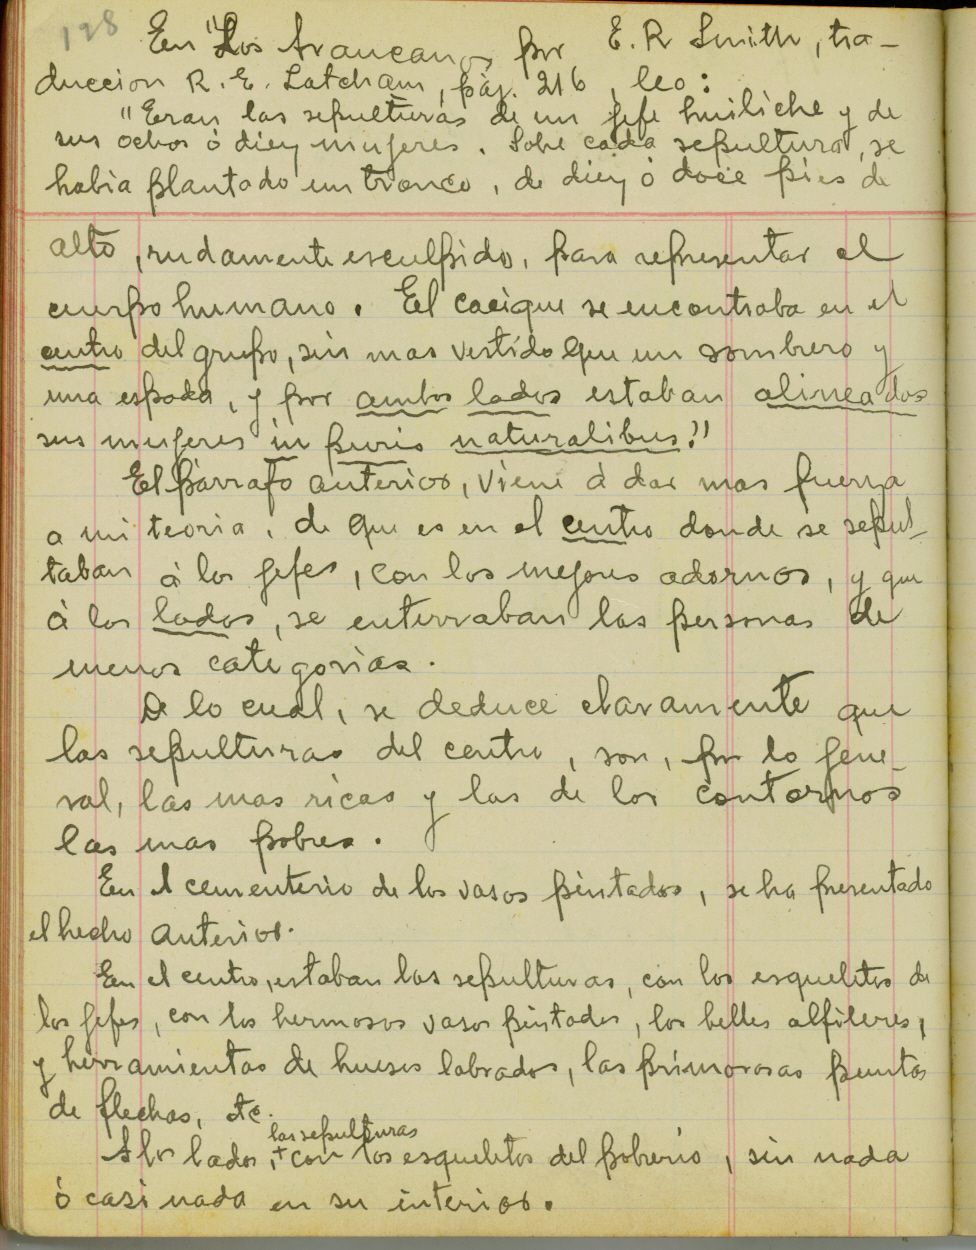 198
En "Los Araucanos por E. R Smith, tra-
duccion R. E. Latcham, páj. 216, leo:
"Eran las sepulturas de un jefe huiliche y de
sus ochos ó diez mujeres. Sobre cada sepultura, se
habia plantado un tronco, de diez ó doce pies de
alto, rudamente esculpido, para representar el
cuerpo humano. El cacique se encontraba en el
centro del grupo, sin mas vestido que un sombrero y
una espada, y por ambos lados estaban alineados
sus mujeres in puris naturalibus!"
El párrafo anterior, viene á dar mas fuerza
a mi teoria, de que es en el centro donde se sepul-
taban á los jefes, con los mejores adornos, y que
á los lados, se enterraban las personas de
menos categorias.
De lo cual, se deduce claramente que
las sepulturas del centro, son, por lo gene-
ral, las mas ricas y las de los contornos
las mas pobres.
En el cementerio de los vasos pintados, se ha presentado
el hecho anterior.
En el centro, estaban las sepulturas, con los esqueletos de
los jefes, con los hermosos vasos pintados, los bellos alfileres,
y herramientas de huesos labrados, las primorosas puntas
de flechas, etc.
las sepulturas
A los lados, + con los esqueletos del pobrerio, sin nada
ó casi nada en su interior.